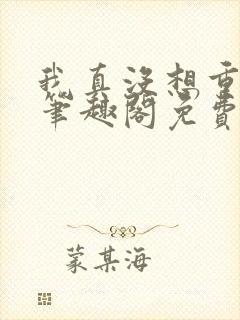 我真没想重
笔趣阁免费
蒙某海